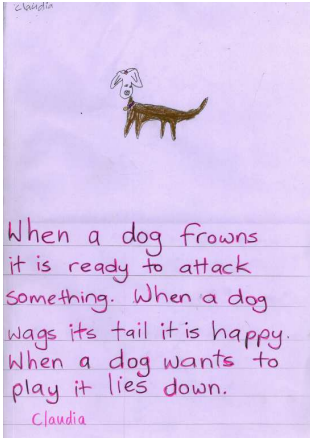 Claudia
When a dog frowns
it is ready to attack
something. When a dog
wags its tail it is happy.
When a dog wants to
play it lies down.
Claudia